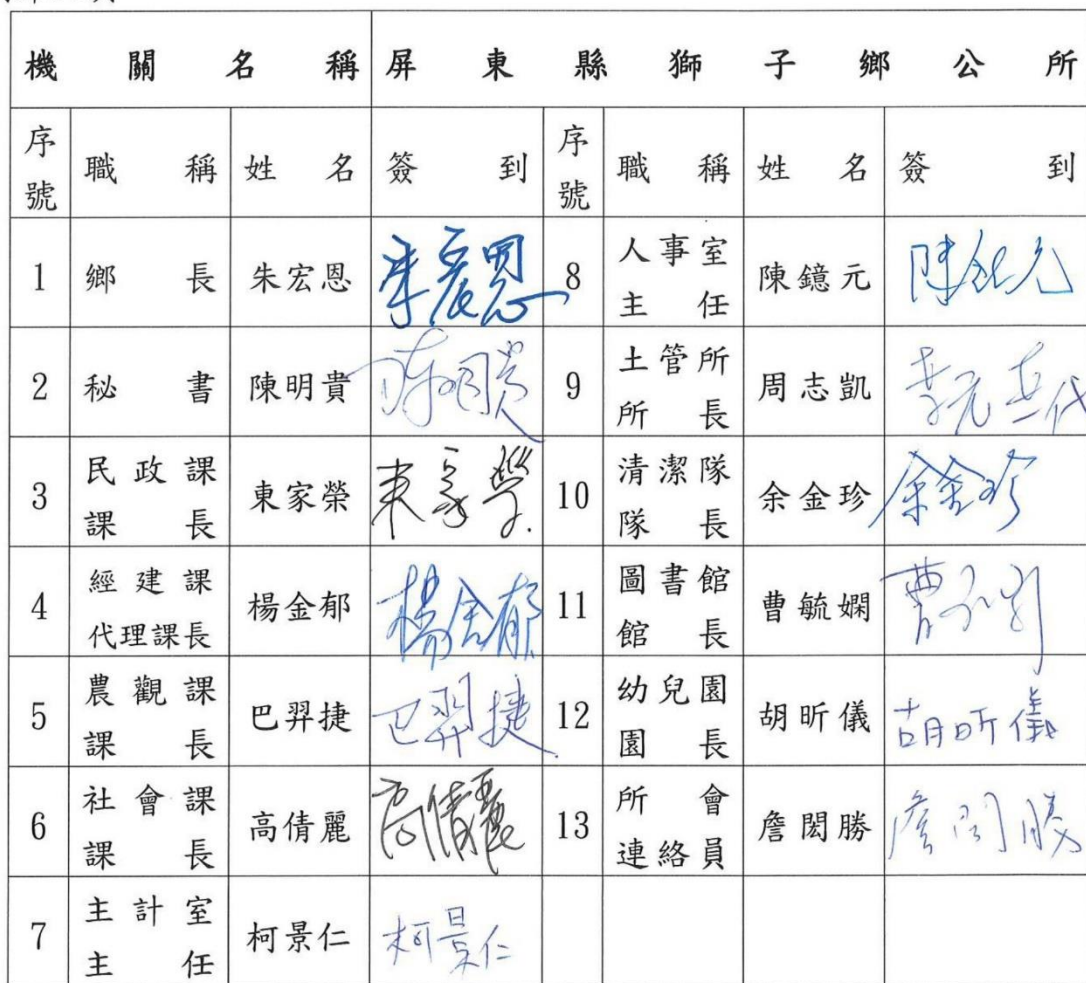 機關名稱 屏東縣獅子鄉公所
序號 職稱 姓名 簽到 序號 職稱 姓名 簽到
1 鄉長 朱宏恩 朱宏恩 8 人事室主任 陳鐿元 陳鐿元
2 秘書 陳明貴 陳明貴 9 土管所所長 周志凱 代
3 民政課課長 東家榮 東家榮 10 清潔隊隊長 余金珍 余金珍
4 經建課代理課長 楊金郁 楊金郁 11 圖書館館長 曹毓嫻 曹
5 農觀課課長 巴羿捷 巴羿捷 12 幼兒園園長 胡昕儀 胡昕儀
6 社會課課長 高倩麗 高倩麗 13 所會連絡員 詹閎勝 詹閎勝
7 主計室主任 柯景仁 柯景仁